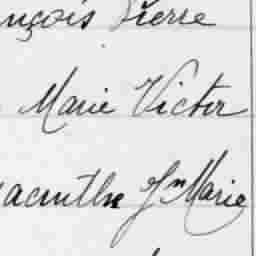 nçois Pierre
Marie Victor
acinthe Jn Marie